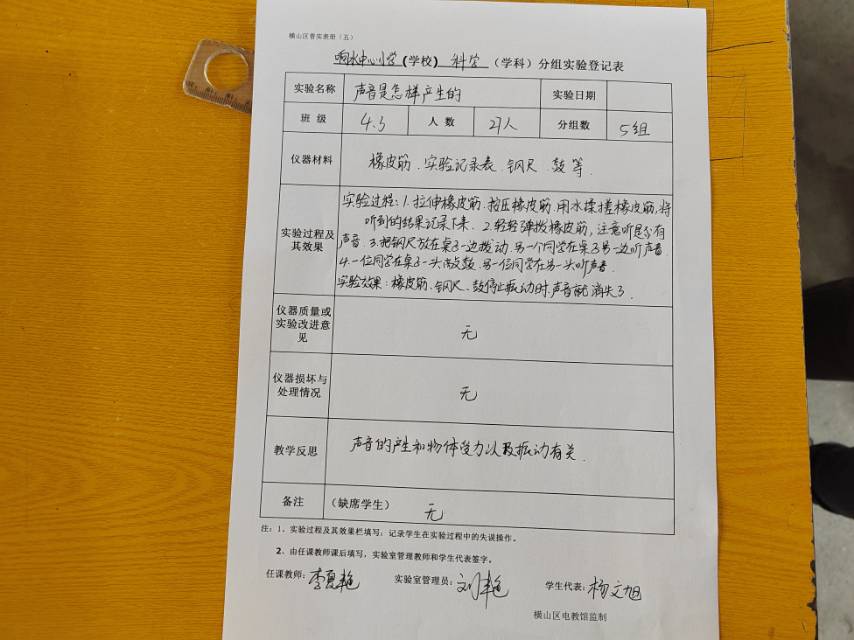 横山区普实表册（五）
响水中心小学（学校） 科学 （学科）分组实验登记表
实验名称 声音是怎样产生的 实验日期
班 级 4.3 人 数 27人 分组数 5组
仪器材料 橡皮筋、实验记录表、钢尺、鼓等.
实验过程及其效果
实验过程：1.拉伸橡皮筋、按压橡皮筋、用水揉搓橡皮筋，将
听到的结果记录下来、2.轻轻弹拨橡皮筋，注意听是否有
声音、3.把钢尺放在桌子一边拨动、另一个同学在桌子另一边听声音
4.一位同学在桌子一头敲鼓、另一位同学在另一头听声音.
实验效果：橡皮筋、钢尺、鼓停止振动时、声音就消失了.
仪器质量或实验改进意见 无
仪器损坏与处理情况 无
教学反思 声音的产生和物体受力以及振动有关.
备注 （缺席学生） 无
注：1、实验过程及其效果栏填写：记录学生在实验过程中的失误操作。
2、由任课教师课后填写，实验室管理教师和学生代表签字。
任课教师：李夏艳 实验室管理员：刘艳 学生代表：杨文旭
横山区电教馆监制